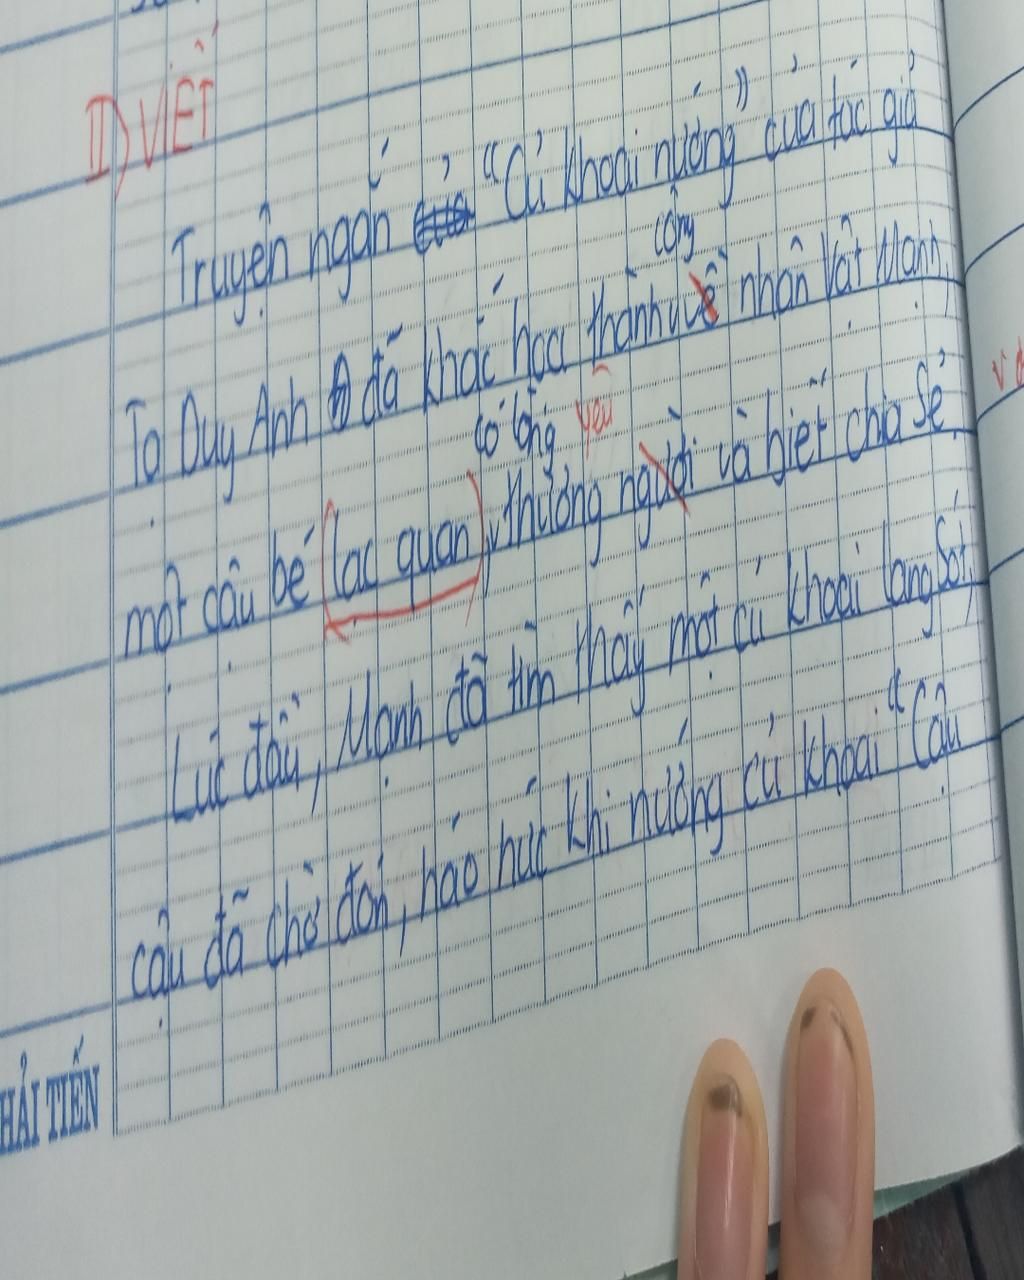 II) VIẾT
Truyện ngắn "Củ khoai nướng" của tác giả
Tạ Duy Anh đã khắc họa thành về nhân vật Mạnh,
công
một cậu bé (lạc quan), thương người và biết chia sẻ.
có lòng yêu
Lúc đầu, Mạnh đã tìm thấy một củ khoai lang sót,
cậu đã chờ đón, háo hức khi nướng củ khoai "Cậu
HẢI TIẾN